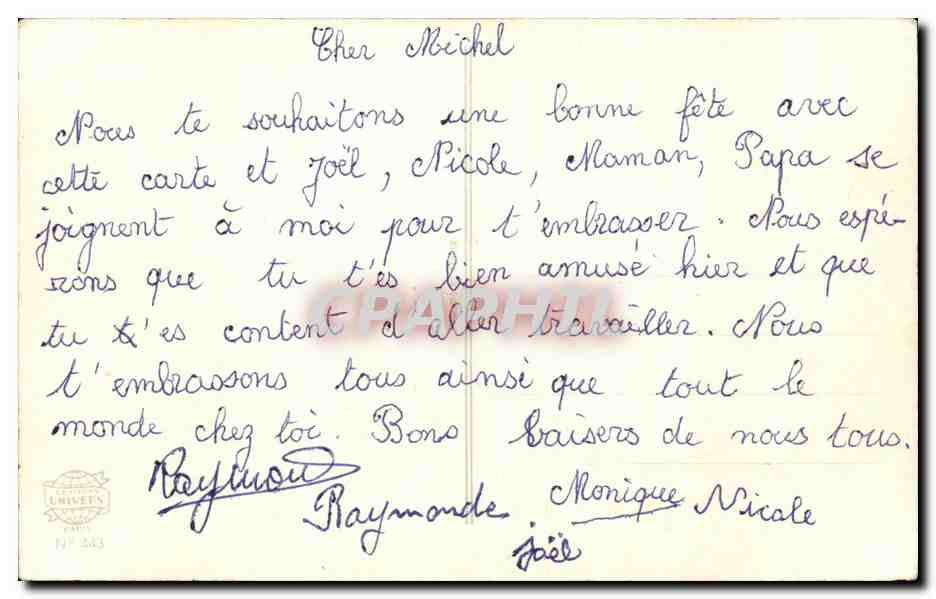 Cher Michel
Nous te souhaitons une bonne fête avec
cette carte et Joël, Nicole, Maman, Papa se
joignent à moi pour t'embrasser. Nous espé-
rons que tu t'es bien amusé hier et que
tu t'es content d'aller travailler. Nous
t'embrassons tous ainsi que tout le
monde chez toi. Bons baisers de nous tous.
Raymond
Raymonde Monique Nicole
Joël
EDITIONS
UNIVERS
PARIS
N° 343
CPARHTI